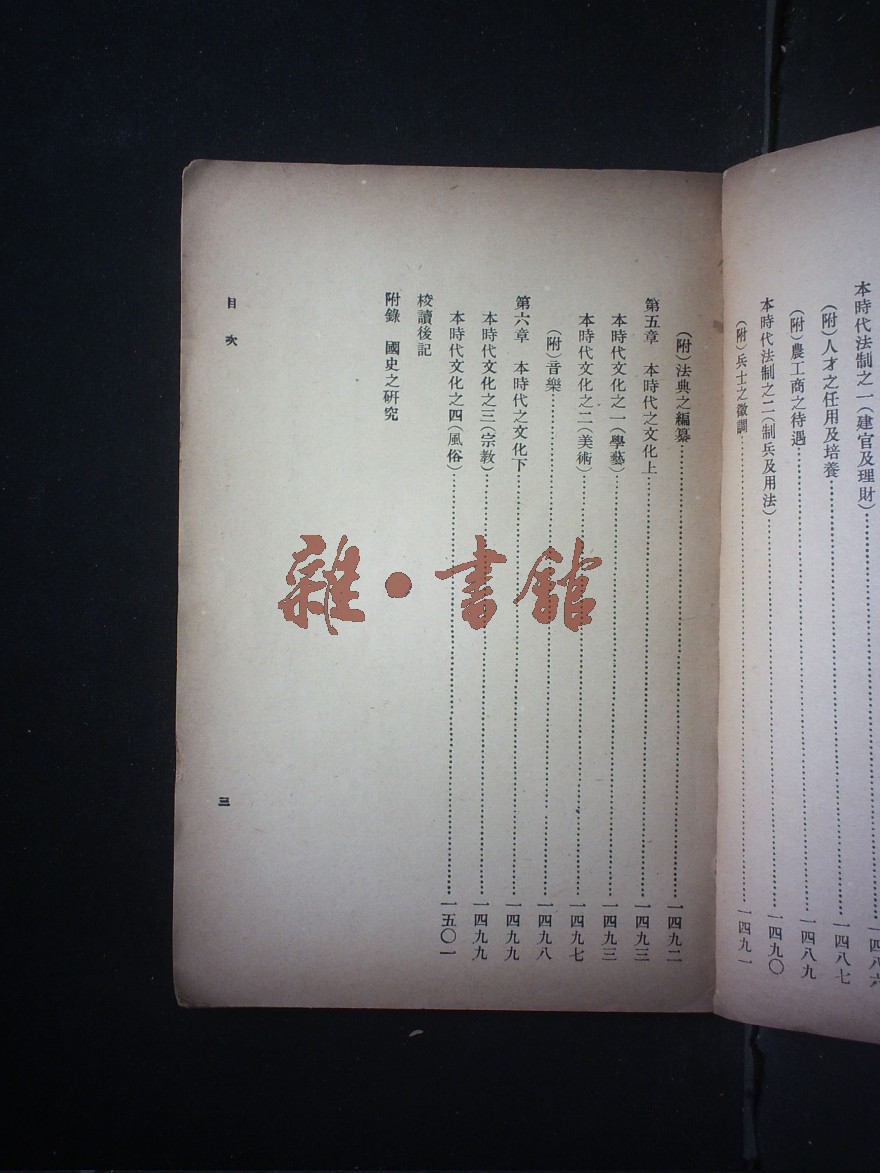 本時代法制之一（建官及理財）……一四八六
（附）人才之任用及培養……一四八七
（附）農工商之待遇……一四八九
本時代法制之二（制兵及用法）……一四九〇
（附）兵士之徵調……一四九一
（附）法典之編纂……一四九二
第五章　本時代之文化上……一四九三
本時代文化之一（學藝）……一四九三
本時代文化之二（美術）……一四九七
（附）音樂……一四九八
第六章　本時代之文化下……一四九九
本時代文化之三（宗教）……一四九九
本時代文化之四（風俗）……一五〇一
校讀後記
附錄　國史之研究
目次
三
雜·書館